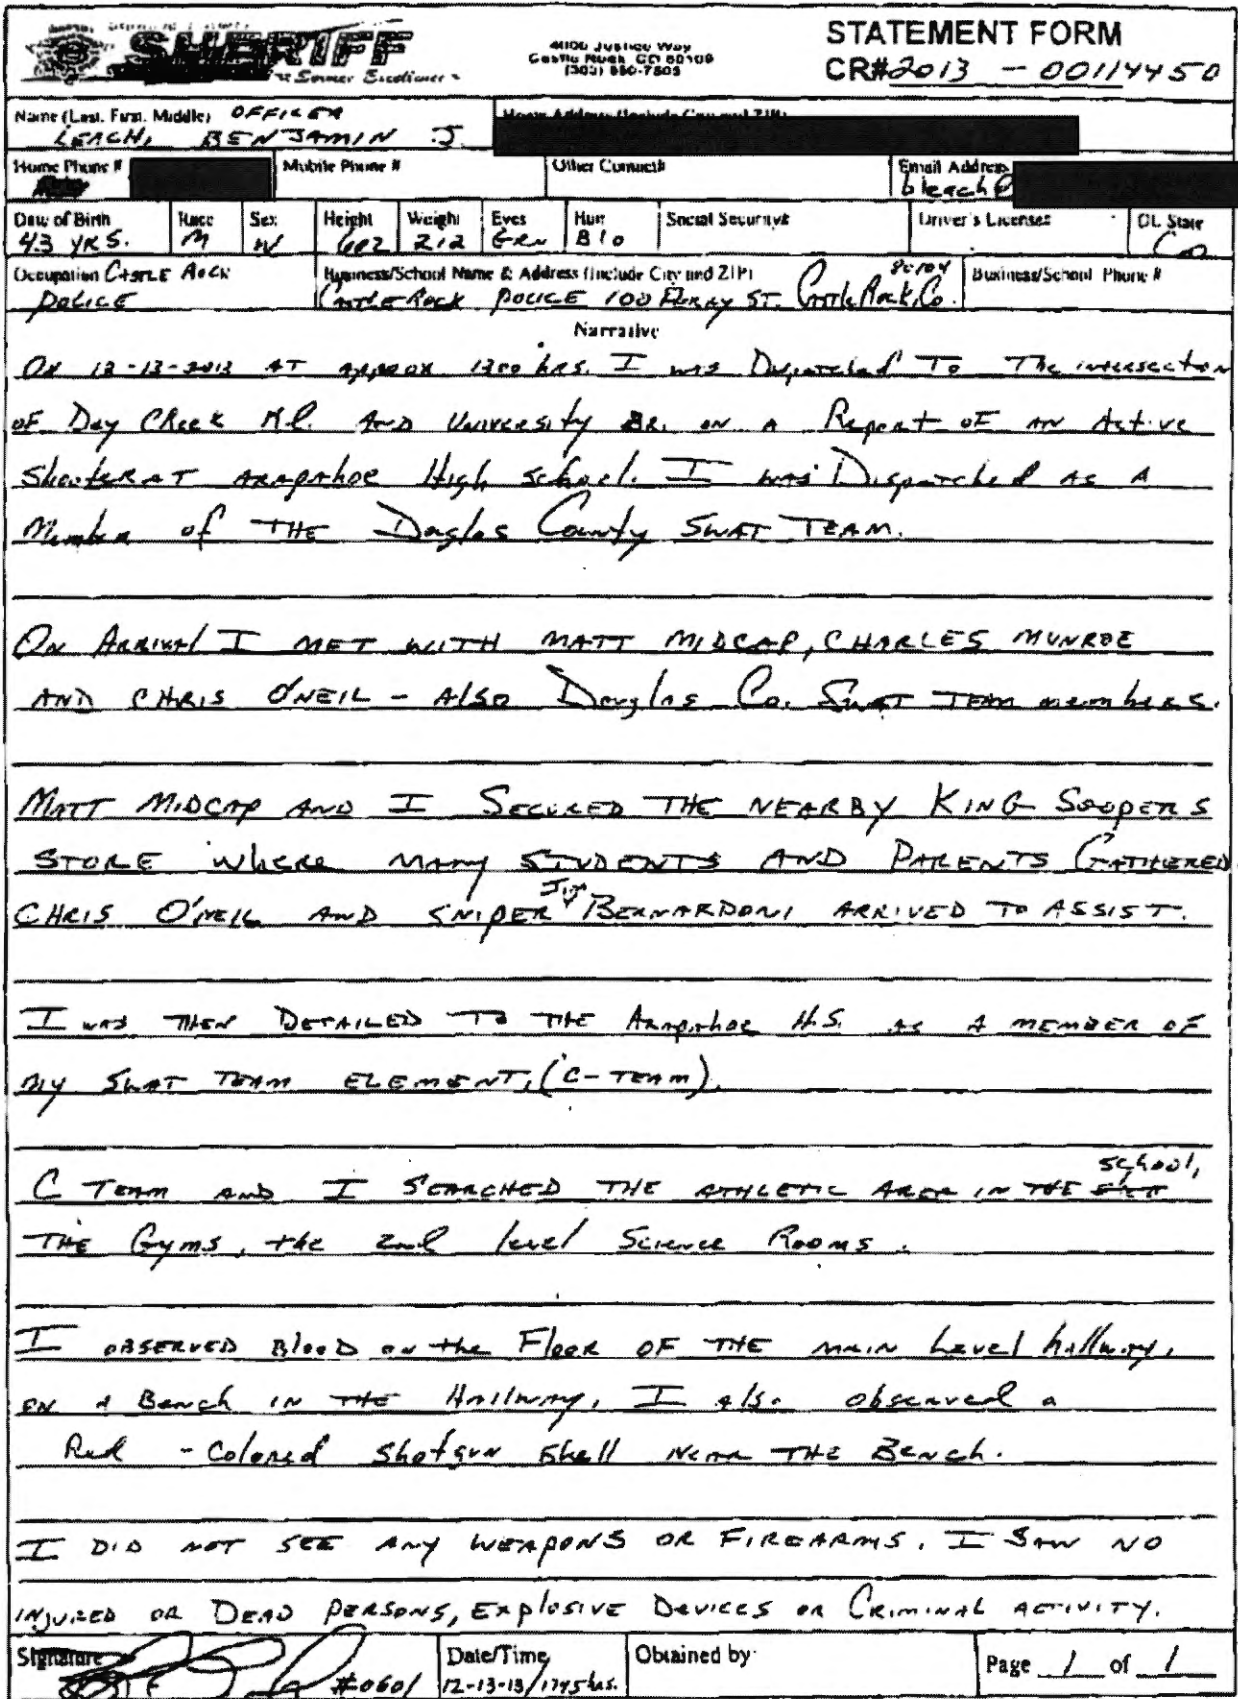 SHERIFF
4000 Justice Way
Castle Rock CO 80109
(303) 660-7505
STATEMENT FORM
CR#2013 - 00114450
Name (Last, First, Middle) OFFICER
LEACH, BENJAMIN J.
Home Address (Include City and ZIP)
Home Phone #
Mobile Phone #
Other Contact#
Email Address
bleach@
Date of Birth Race Sex Height Weight Eyes Hair Social Security# Driver's License# DL State
43 YRS. M W 602 212 GRN Blo Co
Occupation CASTLE ROCK
POLICE
Business/School Name & Address (Include City and ZIP) 80104
CASTLE ROCK POLICE 100 PERRY ST. Castle Rock, Co.
Business/School Phone #
Narrative
ON 12-13-2013 AT approx 1300 hrs. I was Dispatched To The intersection
of Dry Creek Rd. AND University BR. on A Report of AN Active
Shooter AT Arapahoe High School. I was Dispatched AS A
Member of THE Douglas County SWAT TEAM.
ON Arrival I MET WITH MATT MIDCAP, CHARLES MUNROE
AND CHRIS O'NEIL - Also Douglas Co. SWAT TEAM members.
MATT MIDCAP AND I SECURED THE NEARBY KING SOOPERS
STORE where many STUDENTS AND PARENTS GATHERED
CHRIS O'NEIL AND SNIPER Jim BERNARDONI ARRIVED TO ASSIST.
I was THEN DETAILED TO THE Arapahoe H.S. AS A MEMBER OF
MY SWAT TEAM ELEMENT, (C-TEAM).
C TEAM AND I SEARCHED THE ATHLETIC AREA IN THE school,
THE Gyms, the 2nd level Science Rooms.
I OBSERVED Blood on the Floor OF THE MAIN Level hallway,
ON A Bench IN THE Hallway, I also observed a
Red - Colored Shotgun Shell NEAR THE BENCH.
I DID NOT SEE ANY WEAPONS OR FIREARMS. I SAW NO
INJURED OR DEAD PERSONS, EXPLOSIVE DEVICES OR CRIMINAL ACTIVITY.
Signature #0601
Date/Time
12-13-13/1745 hrs.
Obtained by
Page 1 of 1